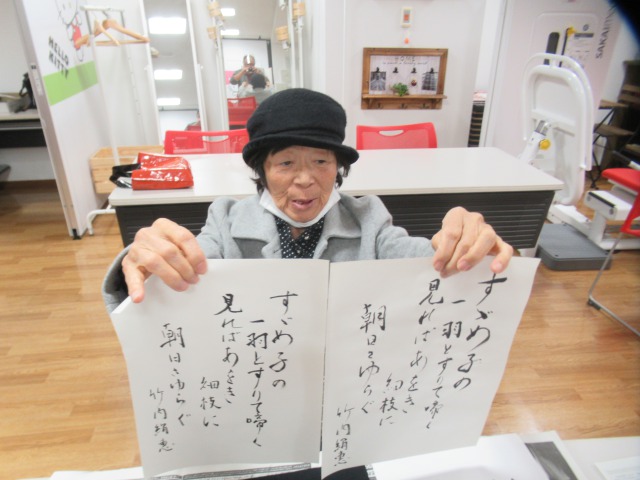 すゞめ子の
一羽とまりて啼く
見ればあをき
細枝に
朝日さゆらぐ
竹内絹恵
すゞめ子の
一羽とまりて啼く
見ればあをき
細枝に
朝日さゆらぐ
竹内絹恵
HELLO
KITTY